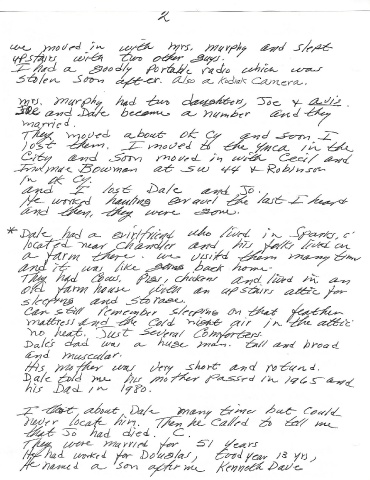 2
we moved in with mrs. murphy and slept
upstairs with two other guys.
I had a goodly portable radio which was
stolen soon after. Also a Kodak Camera.
mrs. murphy had two daughters, Joe &
and Dale became a number and they
married.
They moved about OK Cy and soon I
lost them. I moved to the Ymca in the
City and soon moved in with Cecil and
Bowman at SW 44 & Robinson
in OK Cy.
and I lost Dale and Jo.
He worked hauling gravel the last I heard
and then, they were gone.
* Dale had a girlfriend who lived in Sparks,
located near Chandler and his folks lived on
a farm there. we visitd them many time
and it was like back home.
They had Cows, Pigs, chickens and lived in an
old farm house with an upstairs attic for
sleeping and storage.
Can still remember sleeping on that feather
mattress and the cold night air in the attic
no heat. Just several comforters.
Dale's dad was a huge man. tall and broad
and muscular.
His mother was very short and rotund.
Dale told me his mother passed in 1965 and
his Dad in 1980.
I about Dale many times but could
never locate him. Then he called to tell me
that Jo had died. C.
They were married for 51 years
He had worked for Douglas, 13 yrs,
He named a son after me Kenneth Dave